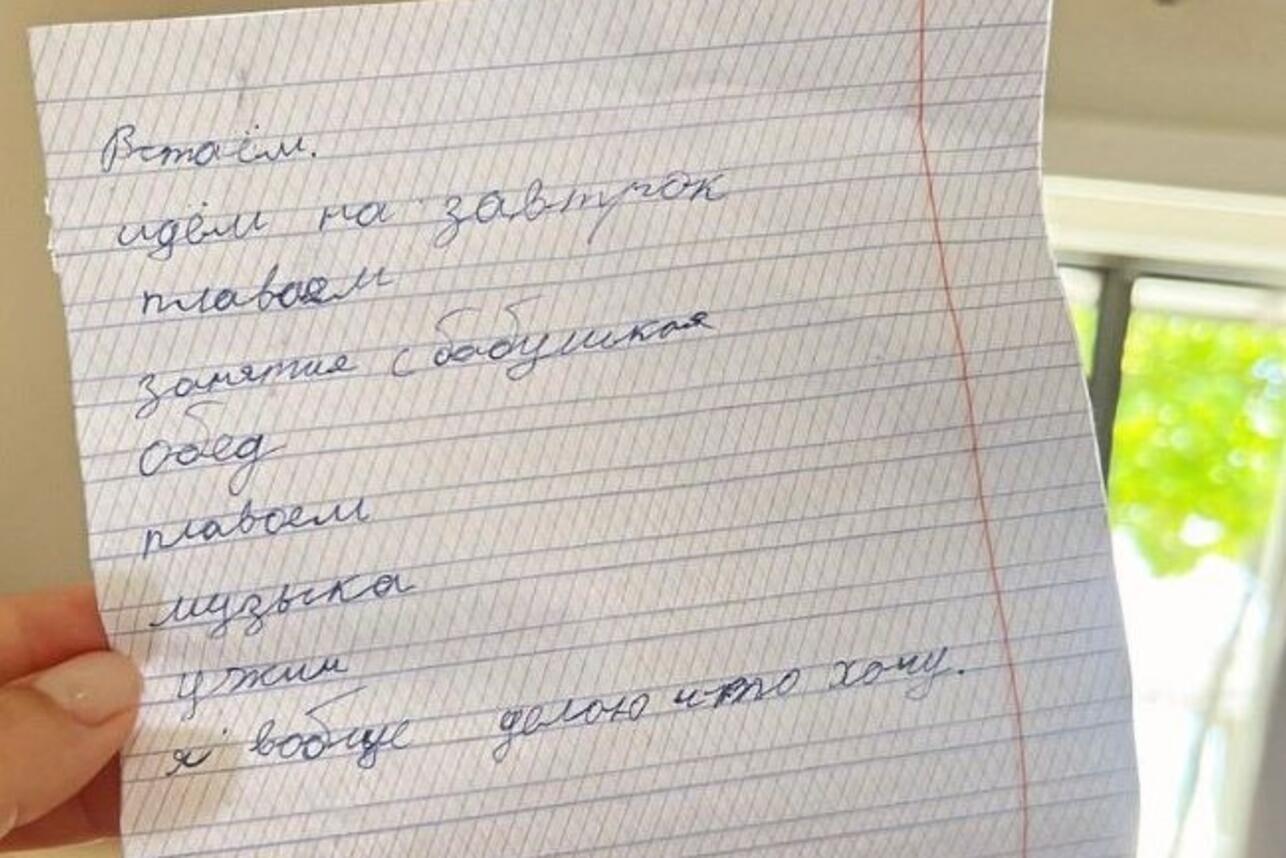 Встаём.
идём на завтрок
плаваем
занятия с бабушкая
Обед
плавоем
музыка
ужин
я вобще делою что хочу.